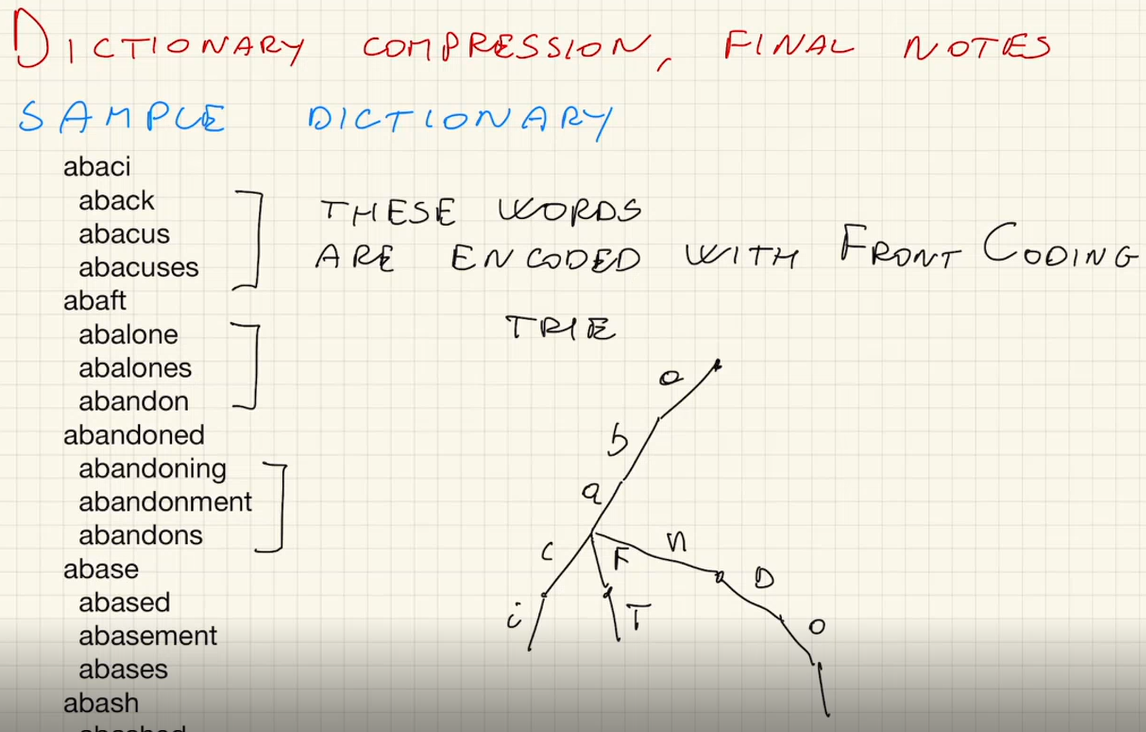 DICTIONARY COMPRESSION, FINAL NOTES
SAMPLE DICTIONARY
abaci
aback
abacus
abacuses
abaft
abalone
abalones
abandon
abandoned
abandoning
abandonment
abandons
abase
abased
abasement
abases
abash
THESE WORDS
ARE ENCODED WITH FRONT CODING
TRIE
a
b
a
c F n
D
i T o